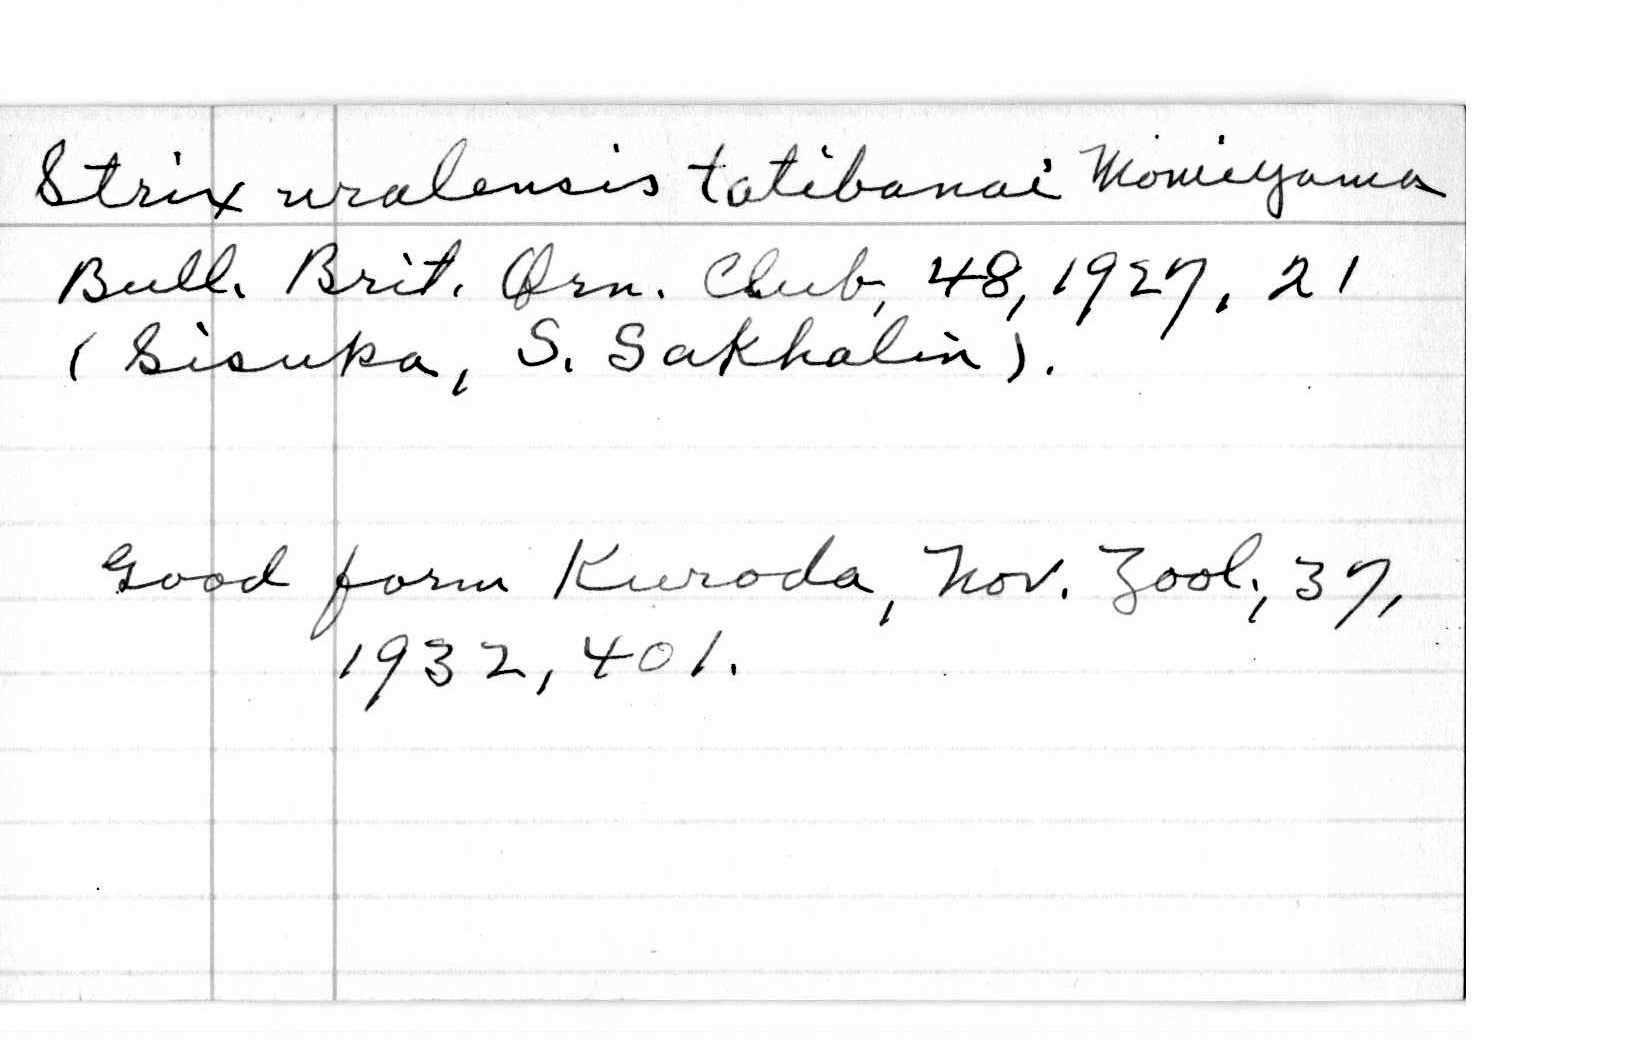 Strix uralensis tatibanai Momiyama
Bull. Brit. Orn. Club, 48, 1927, 21
(Sisuka, S. Sakhalin).
Good form Kuroda, Nov. Zool., 37,
1932, 401.